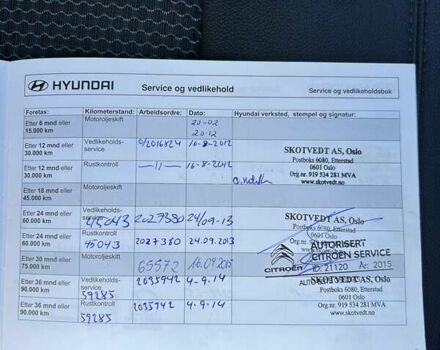 HYUNDAI
Service og vedlikehold
Service og vedlikeholdsbok
Foretas: Kilometerstand: Arbeidsordre: Dato: Hyundai verksted, stempel og signatur:
Etter 6 mnd eller 15.000 km Motoroljeskift 20-02 2012
Etter 12 mnd eller 30.000 km Vedlikeholds-service 0/2016824 16-8-2012
SKOTVEDT AS, Oslo
Postboks 6080, Etterstad
0601 Oslo
Org.nr. 919 534 281 MVA
www.skotvedt.no
Etter 12 mnd eller 30.000 km Rustkontroll —11— 16-8-2012
Etter 18 mnd eller 45.000 km Motoroljeskift
Etter 24 mnd eller 60.000 km Vedlikeholds-service 45043 2027380 24/09-13
SKOTVEDT AS, Oslo
Postboks 6080, Etterstad
Etter 24 mnd eller 60.000 km Rustkontroll 45043 2027380 24.09.2013
AUTORISERT
CITROËN SERVICE
CITROËN ID: 21120 År: 2015
Etter 30 mnd eller 75.000 km Motoroljeskift 65572 16.09.2015
Etter 36 mnd eller 90.000 km Vedlikeholds-service 59285 2035942 4-9.14
SKOTVEDT AS, Oslo
0601 Oslo
Org.nr. 919 534 281 MVA
www.skotvedt.no
Etter 36 mnd eller 90.000 km Rustkontroll 59285 2035942 4-9.14